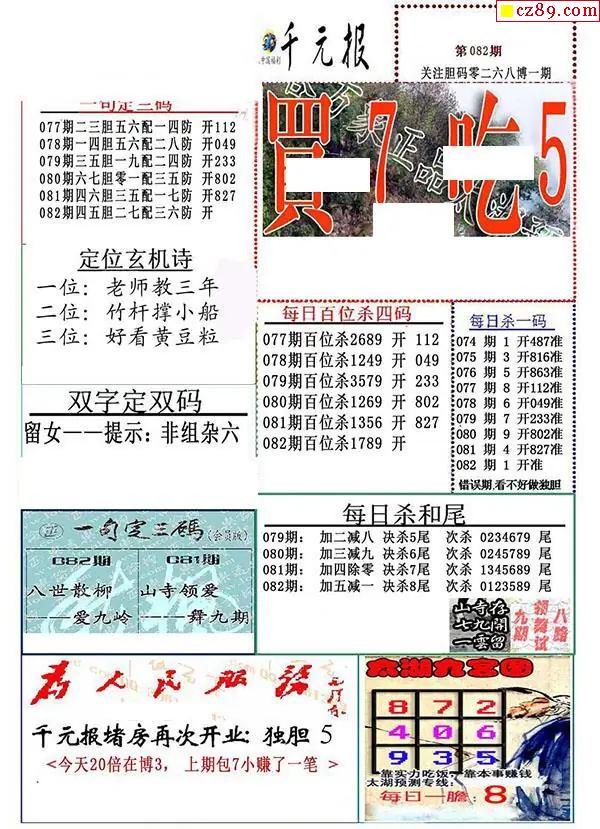 cz89.com
千元报
中国福利
第082期
关注胆码零二六八博一期
一句定三码
077期二三胆五六配一四防 开112
078期一四胆五六配二八防 开049
079期三五胆一九配二四防 开233
080期六七胆零一配三五防 开802
081期四六胆三五配一七防 开827
082期四五胆二七配三六防 开
買7吃5
正品
定位玄机诗
一位: 老师教三年
二位: 竹杆撑小船
三位: 好看黄豆粒
每日百位杀四码
077期百位杀2689 开 112
078期百位杀1249 开 049
079期百位杀3579 开 233
080期百位杀1269 开 802
081期百位杀1356 开 827
082期百位杀1789 开
每日杀一码
074 期 1 开487准
075 期 3 开816准
076 期 5 开863准
077 期 8 开112准
078 期 6 开049准
079 期 7 开233准
080 期 9 开802准
081 期 4 开827准
082 期 1 开准
错误期,看不好做独胆
双字定双码
留女——提示: 非组杂六
一句定三碼(会员版)
082期
081期
八世散柳
——爱九岭
山寺领爱
——舞九期
每日杀和尾
079期: 加二减八 决杀5尾 次杀 0234679 尾
080期: 加三减九 决杀6尾 次杀 0245789 尾
081期: 加四除零 决杀7尾 次杀 1345689 尾
082期: 加五减一 决杀8尾 次杀 0123589 尾
山寺存
七九開
一雲留
八路
领舞试
九期
为人民服务
千元报堵房再次开业: 独胆 5
<今天20倍在博3, 上期包7小赚了一笔 >
太湖九宫图
8 7 2
4 0 6
9 3 5
靠实力吃饭, 靠本事赚钱
太湖预测专线:
每日一膽: 8